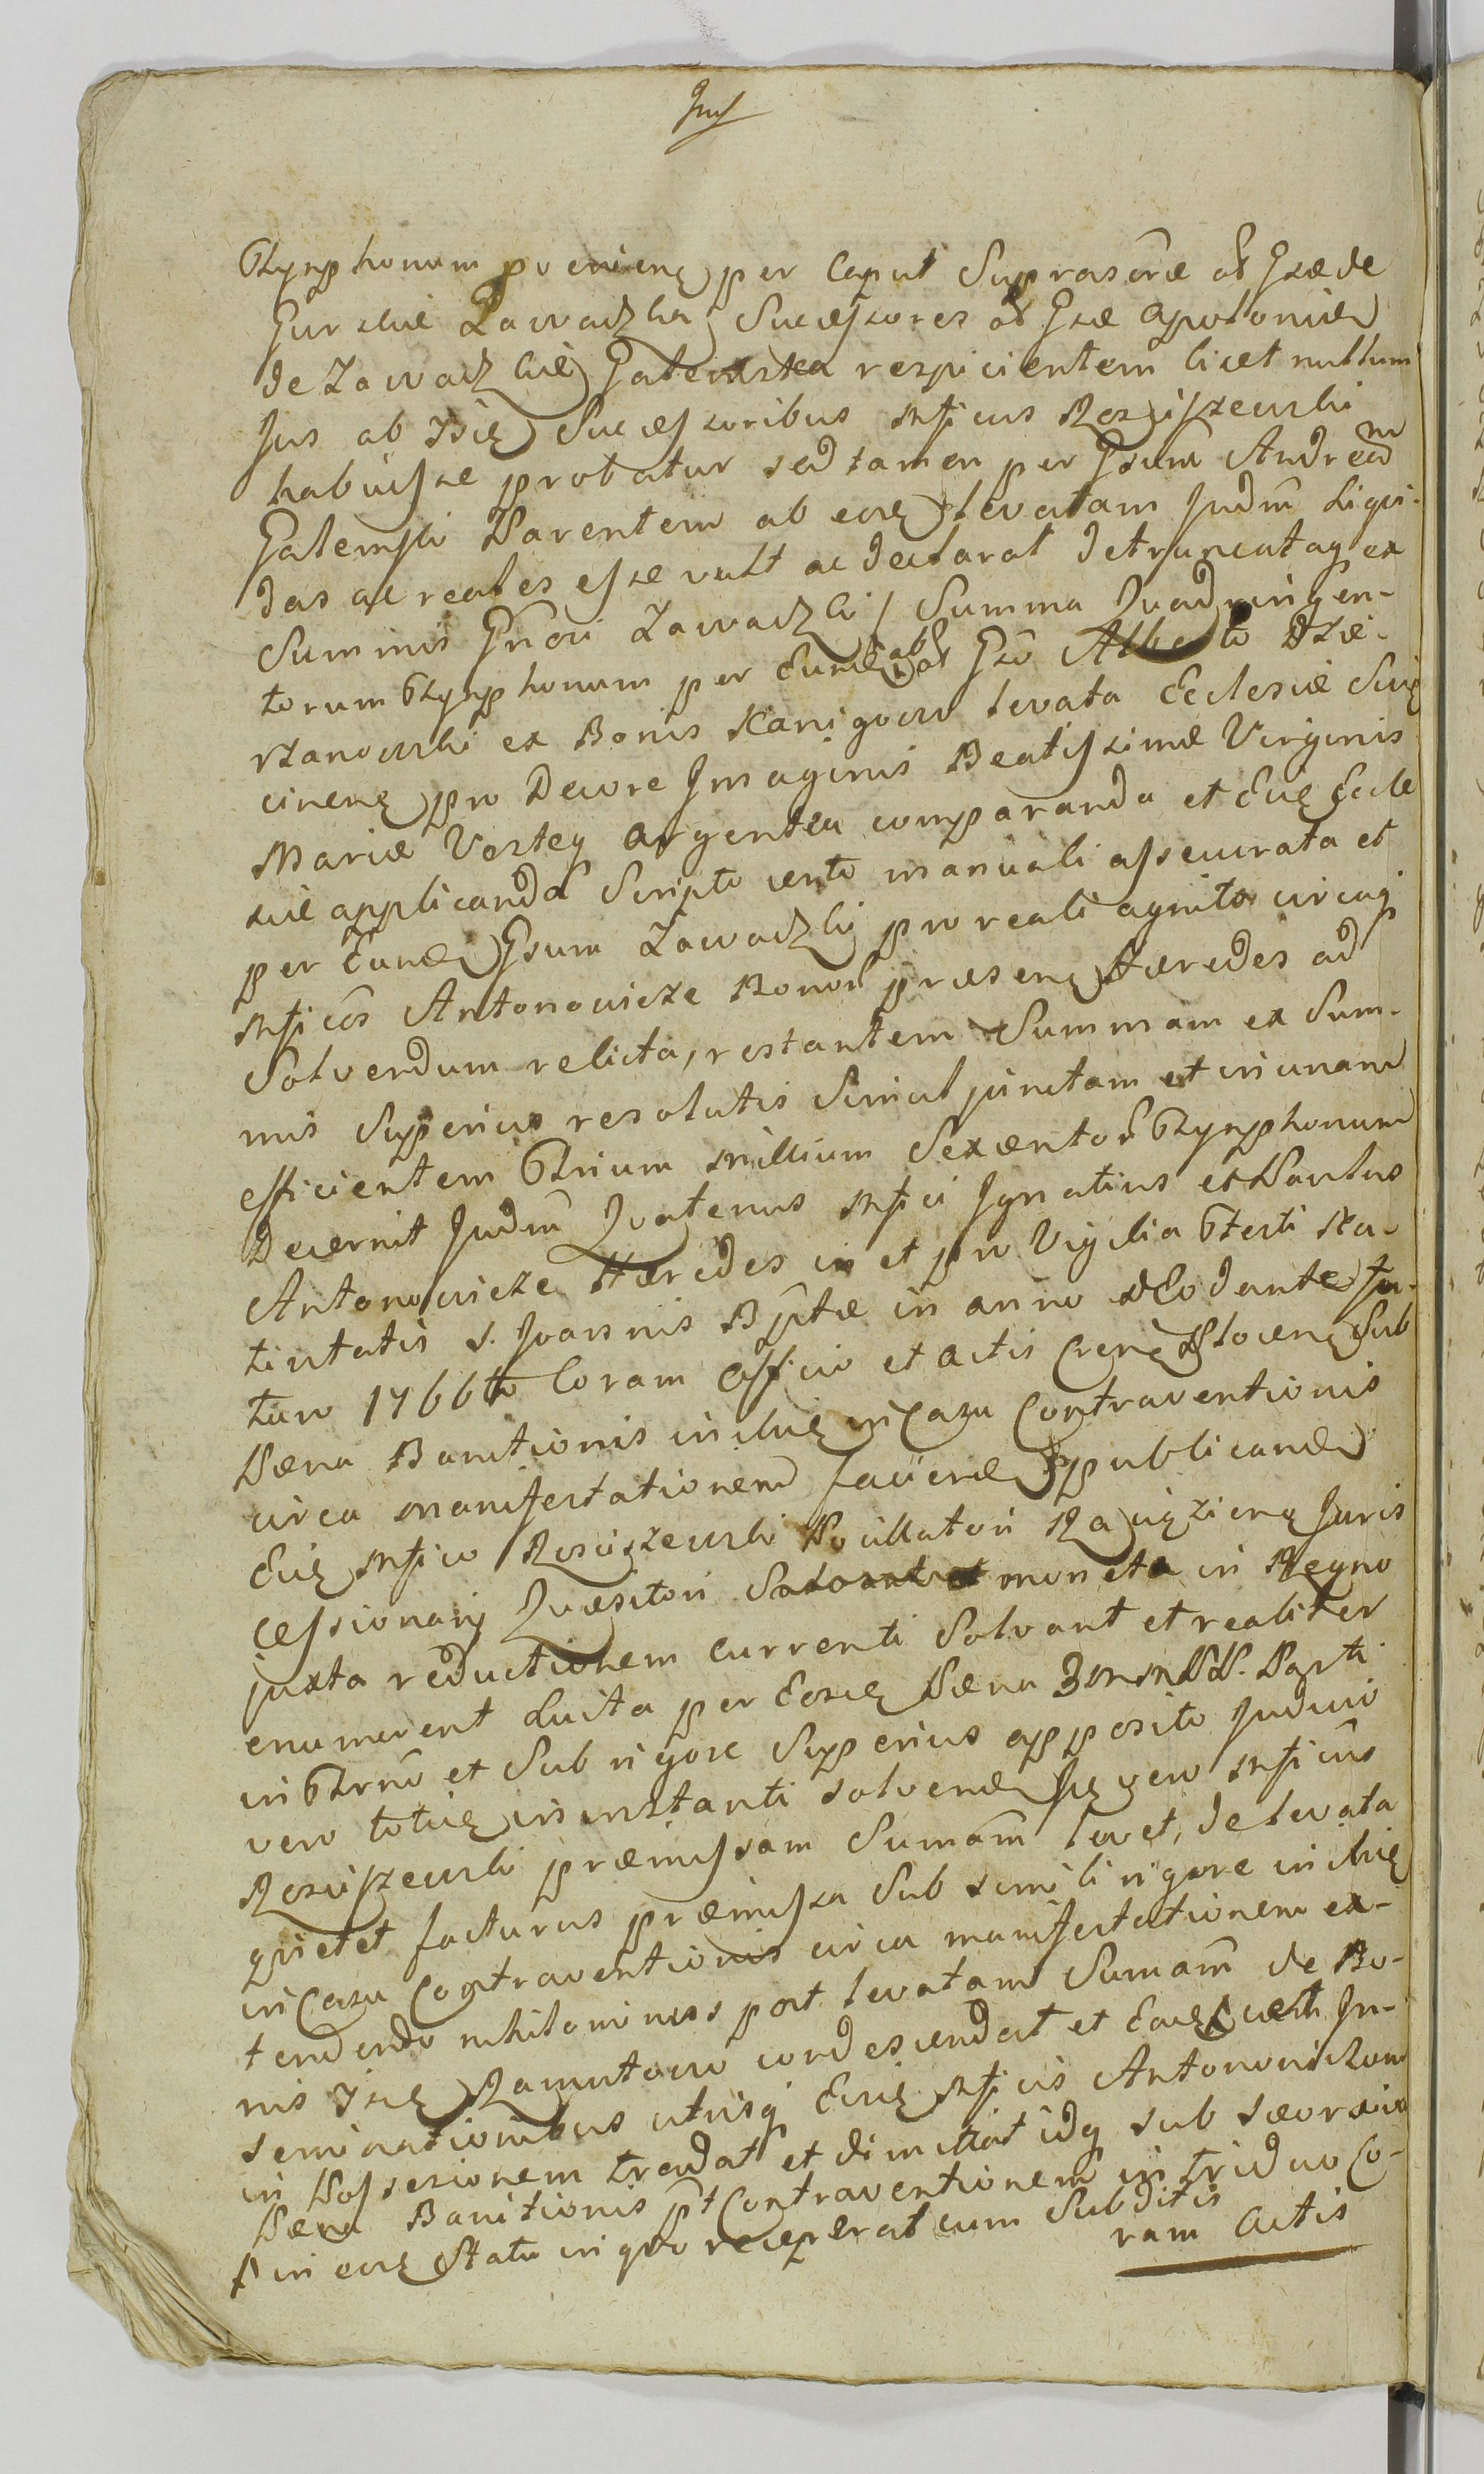 Tynphonum proveniens per Caput Suprascriptæ olim Gsæ de
Gurskie Zawadzka Sucessores olim Gsæ Apoloniæ
de Zawadzkie Galemska respicientem licet nullum
Jus ab Iisd Sucessoribus Mfcus Rosciszewski
habuisse probatur sed tamen per Gsum Andream
Galemski Parentem ab eorum levatam Judm Liqui-
das ac reales esse vult ac declarat detruncatag ex
Summis Gnosi Zawadzki / Summa Quadringen-
torum Tynphonum per Eund ab olim Gso Alberto Dzie-
rzanowski ex Bonis Kanigowo levata Ecclesiæ Swię
cinens pro Decore Imaginis Beatissimæ Virginis
Mariæ Vesteq argentea comparanda et Eid Eccle
siæ applicanda Scripto certo manuali assecurata et
per Eund Gsum Zawadzki pro reali agnita circaq
Mficos Antonowicze Bonor præsens Hæredes ad
Solvendum relicta, restantem Summam ex Sum-
mis Superius resolutis Simul junctam et in unam
efficientem Trium Millium Sexcentor Tynphonum
Decernit Judm Quatenus Mfici Ignatius et Paulus
Antonowicze Hæredes in et pro Vigilia Festi Na-
tivitatis S. Joannis Bptæ in anno dedante fu-
turo 1766to Coram Officio et Actis Crens Plocens Sub
Pæna Banitionis in ... in Casu Contraventionis
circa manifestationem faciend publicand
Eid Mfico Rosciszewski Pocillatori Raciąziens Juris
Cessionarij Quæsitori moneta in Regno
juxta reductionem currenti Solvant et realiter
enumerent Luita per Eosd Pæna 3 M M P P. Parti
in Trno et Sub rigore Superius apposito Judicio
vero totid in instanti solvend Is vero Mficus
Rosciszewski præmissam Sumam levet, de levata
quietet facturus præmissa Sub simili rigore in ...
in Casu Contraventionis circa manifestationem ex-
tendendo nihilominus post levatam Sumam de Bo-
nis Iisd Ramutowo condescendat et Ead cum In-
seminationibus utrisq Eisd Mficis Antonowiczom
in Possesionem tradat et dimittat idq sub sævoriori
Pæna Banitionis pt Contraventionem in triduo Co-
in eod Statu in quo receperat cum Subditis
ram Actis